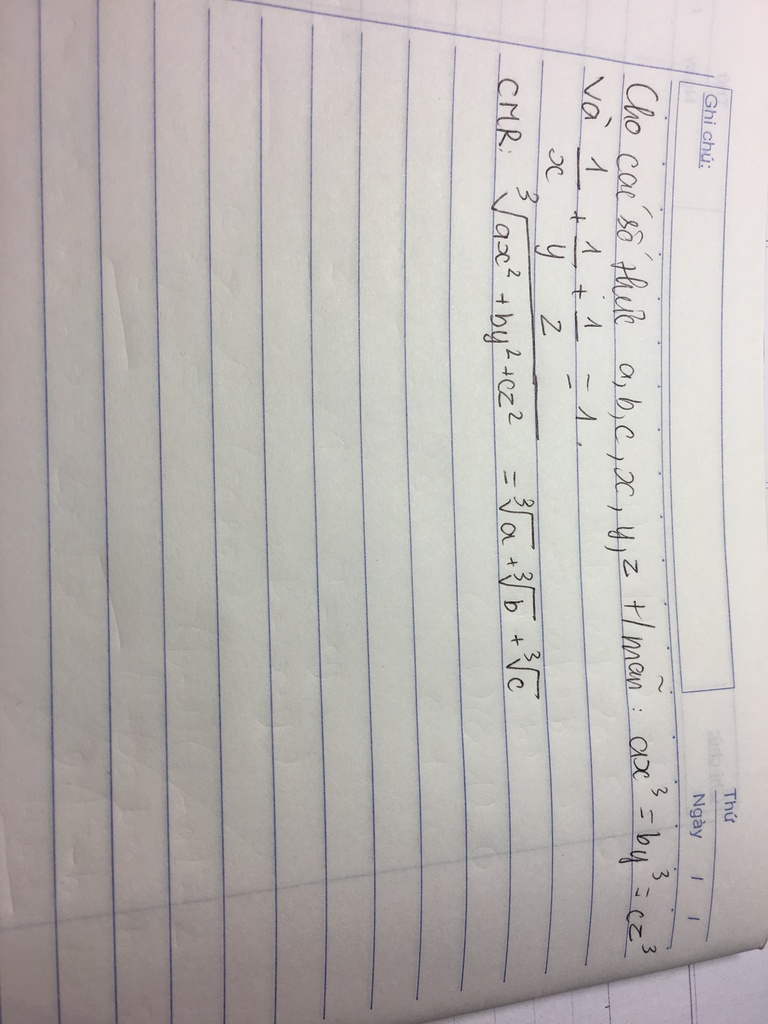 Thứ
Ghi chú:
Ngày / /
Cho các số thức a, b, c, x, y, z t/mãn : ax³ = by³ = cz³
và 1/x + 1/y + 1/z = 1.
CMR: ∛(ax² + by² + cz²) = ∛a + ∛b + ∛c